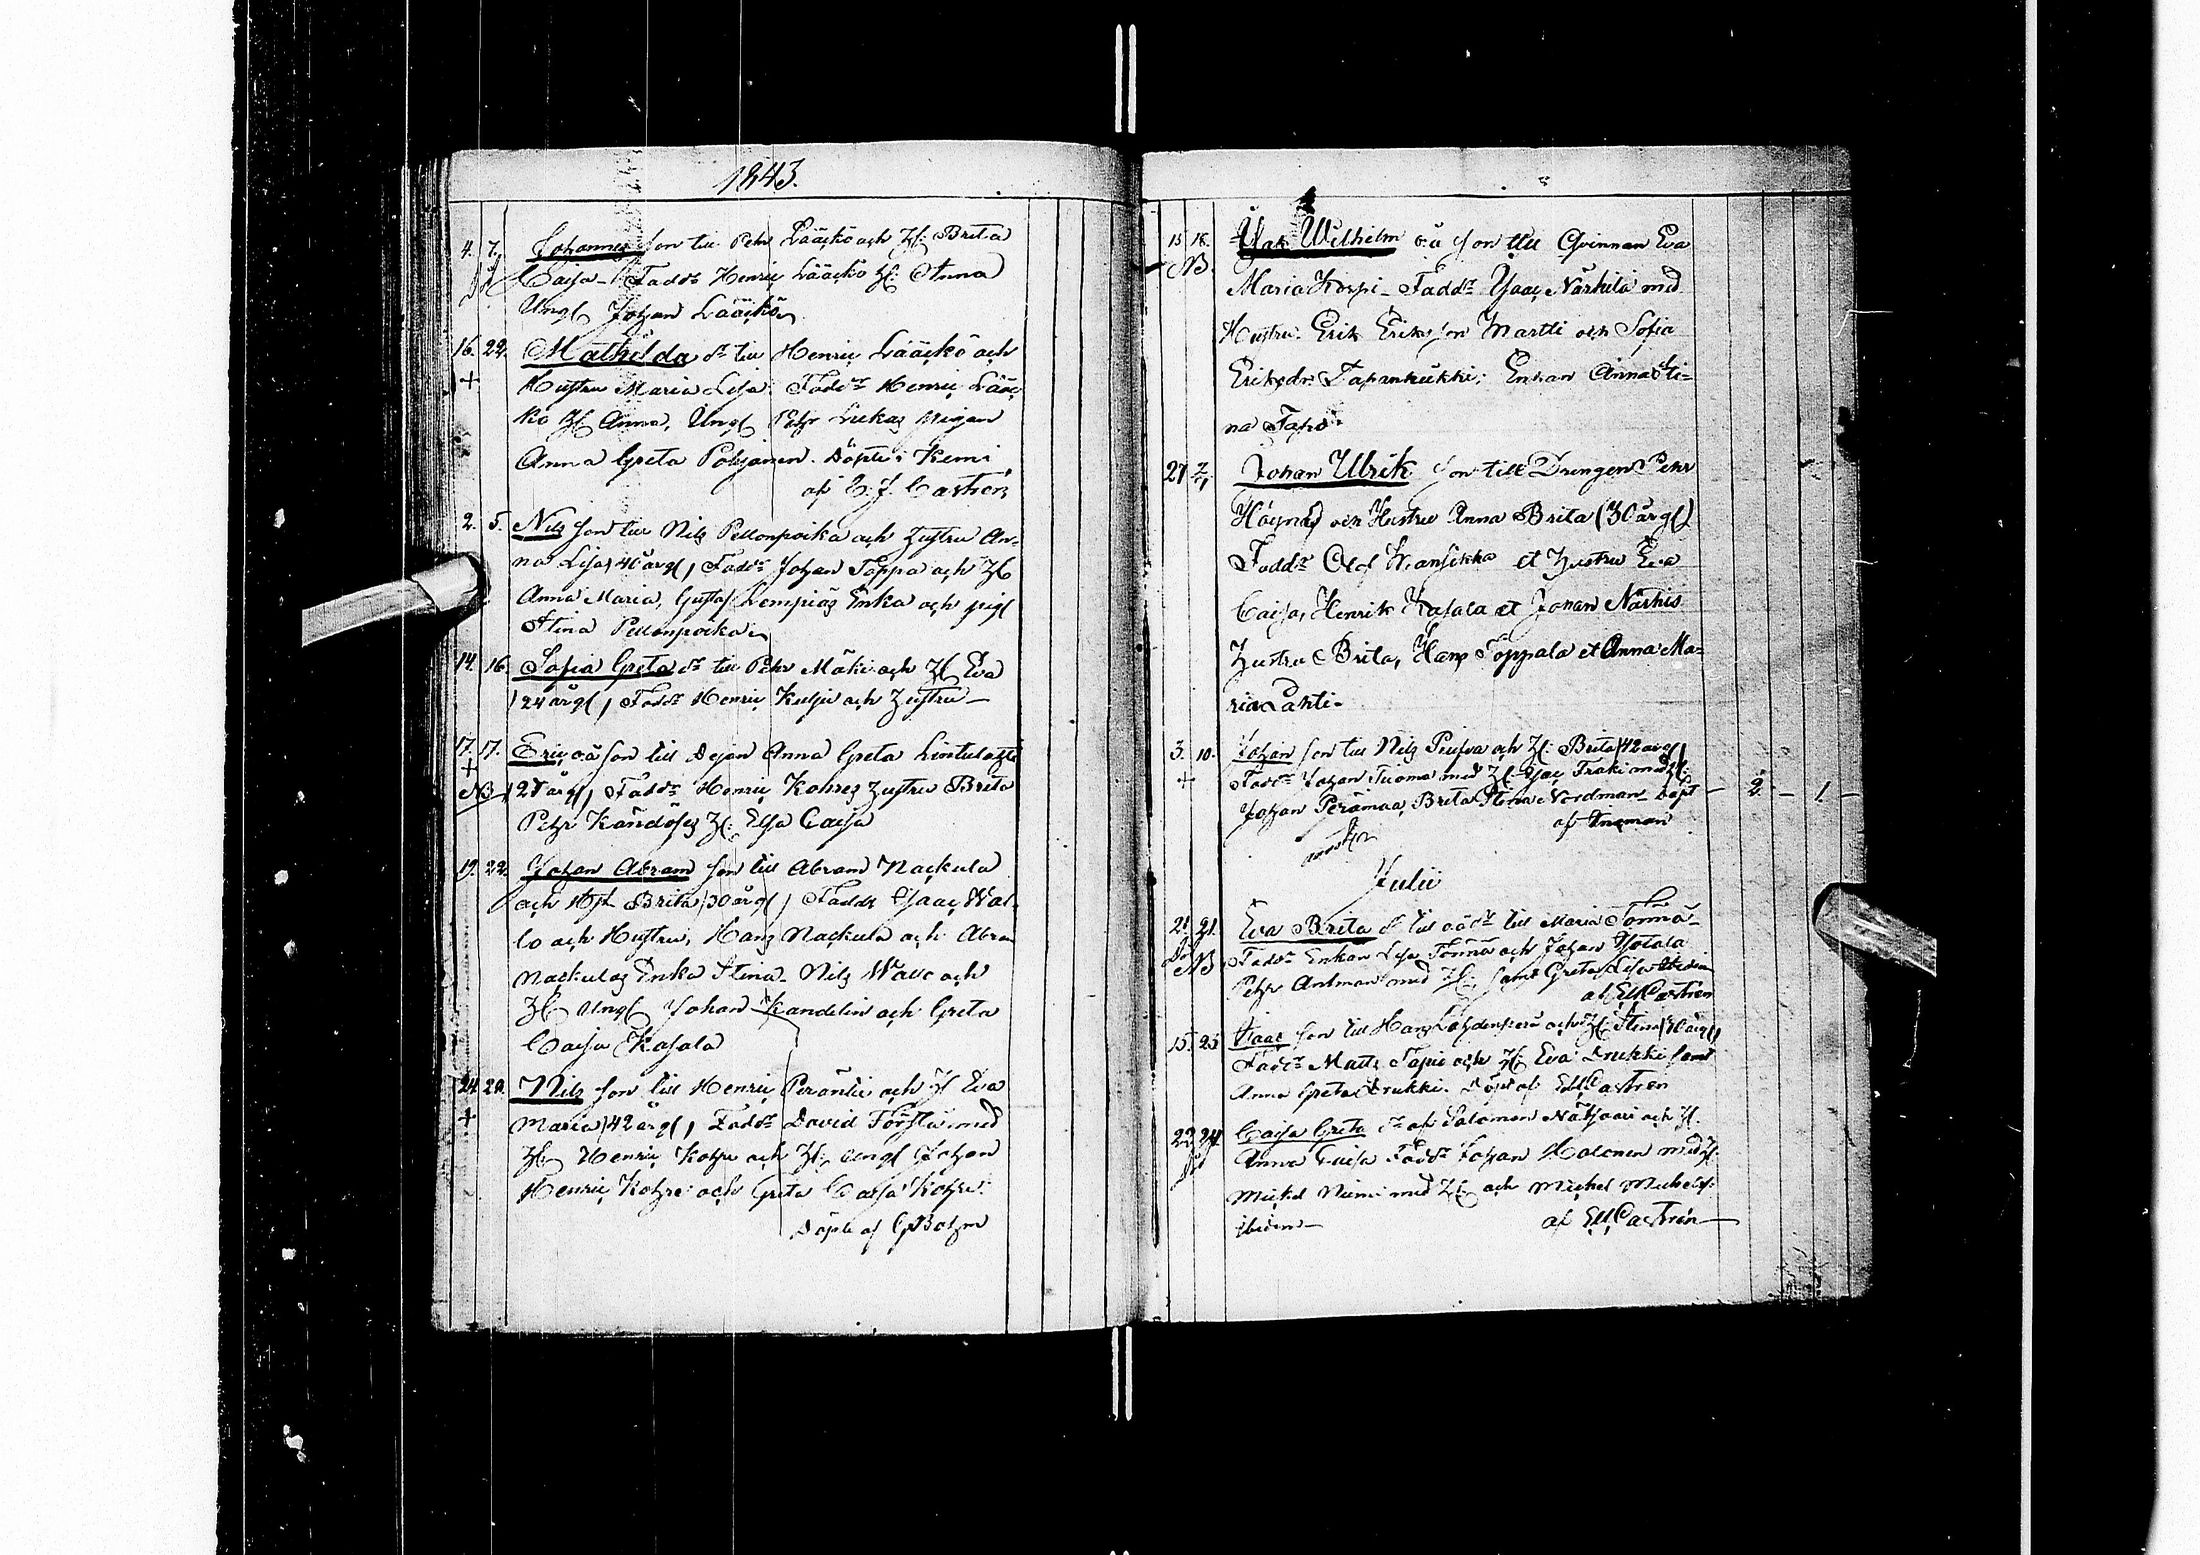 1843.
4. 7. Johannes son till Pehr Lääckö och H: Brita
Caisa - Fadd: Henric Lääckö H: Anna
Ungk Johan Lääckö
16. 22. Mathilda dr till Henric Lääckö och
+ Hustru Maria Lisa. Fadd: Henric Lääc
kö H Anna, Ungk Pehr Lukas pigan
Anna Greta Pohjanen. Döpte i Kemi
af E. J. Castren
2. 5. Nils son till Nils Pellonpoika och hustru An=
na Lisa, 40 årg, Fadd: Johan Toppa och H
Anna Maria, Gustaf Lempiäs Enka och pig
Stina Pellonpoika
14. 16. Sofia Greta dr till Pehr Mäki och H Eva
24 årg, Fadd: Henric Kulju och hustru —
17. 17. Eric oä son till Dejan Anna Greta
+ NB 27 årg, Fadd: Henric Kohres hustru Brita
Pehr H: Elsa Caisa
19. 22. Johan Abram son till Abram Nackula
och Hst Brita 30 årg, Fadd: Isaac Wal=
lo och Hustru, Hans Nackula och Abra
Nackulas Enka Stina - Nils Wallo och
H Ungk Johan Kandelin och Greta
Caisa Kasala
24. 29. Nils son till Henric Peräntie och H Eva
+ Maria 42 årg, Fadd: David Försti med
H Henric Kohre och H: Ungk Johan
Henric Kohre och Greta Caisa Kohre
Döpte af G Bohm
15 18. Isak Wilhelm oä son till Qvinnan Eva
NB. Maria Korpi - Fadd: Isaac Närhilä med
Hustru. Erik Eriksson Martti och Sofia
Eriksdr Tapankükki; Enkan Anna Sti=
na Tapio
27 2/7 Johan Ulrik son till Drengen Pehr
och Hustru Anna Brita (30 årg)
Fadd: Olof Kransikka et hustru Eva
Caisa, Henrik Kasala et Johan Närhis
Hustru Brita, Hans Toppala et Anna Ma=
ria Lahti.
3. 10. Johan son till Nils och H: Brita 42 årg
+ Fadd: Johan Tuoma med H: Isac Fraki med H:
Johan Perämaa, Brita Stina Nordman - Döpt — 2 — 1 —
af
Julii
21 21. Eva Brita dr till oädr till Maria Tornä -
NB Fadd: Enkan Lisa Tornä och Johan
Pehr Antman med H: samt Greta Lisa
af E M Castren
15. 25 Isaac son till Hans och H: Stina 40 årg
Fadd: Matts Tapio och H: Eva Drukki samt
Anna Greta Drukki. Döpt af E M Castren
22 24. Caisa Greta dr af Salomon och H.
Anna Caisa Fadd: Johan Halonen med H:
Michel Niemi med H: och Michel
ibidem — af E M Castren —